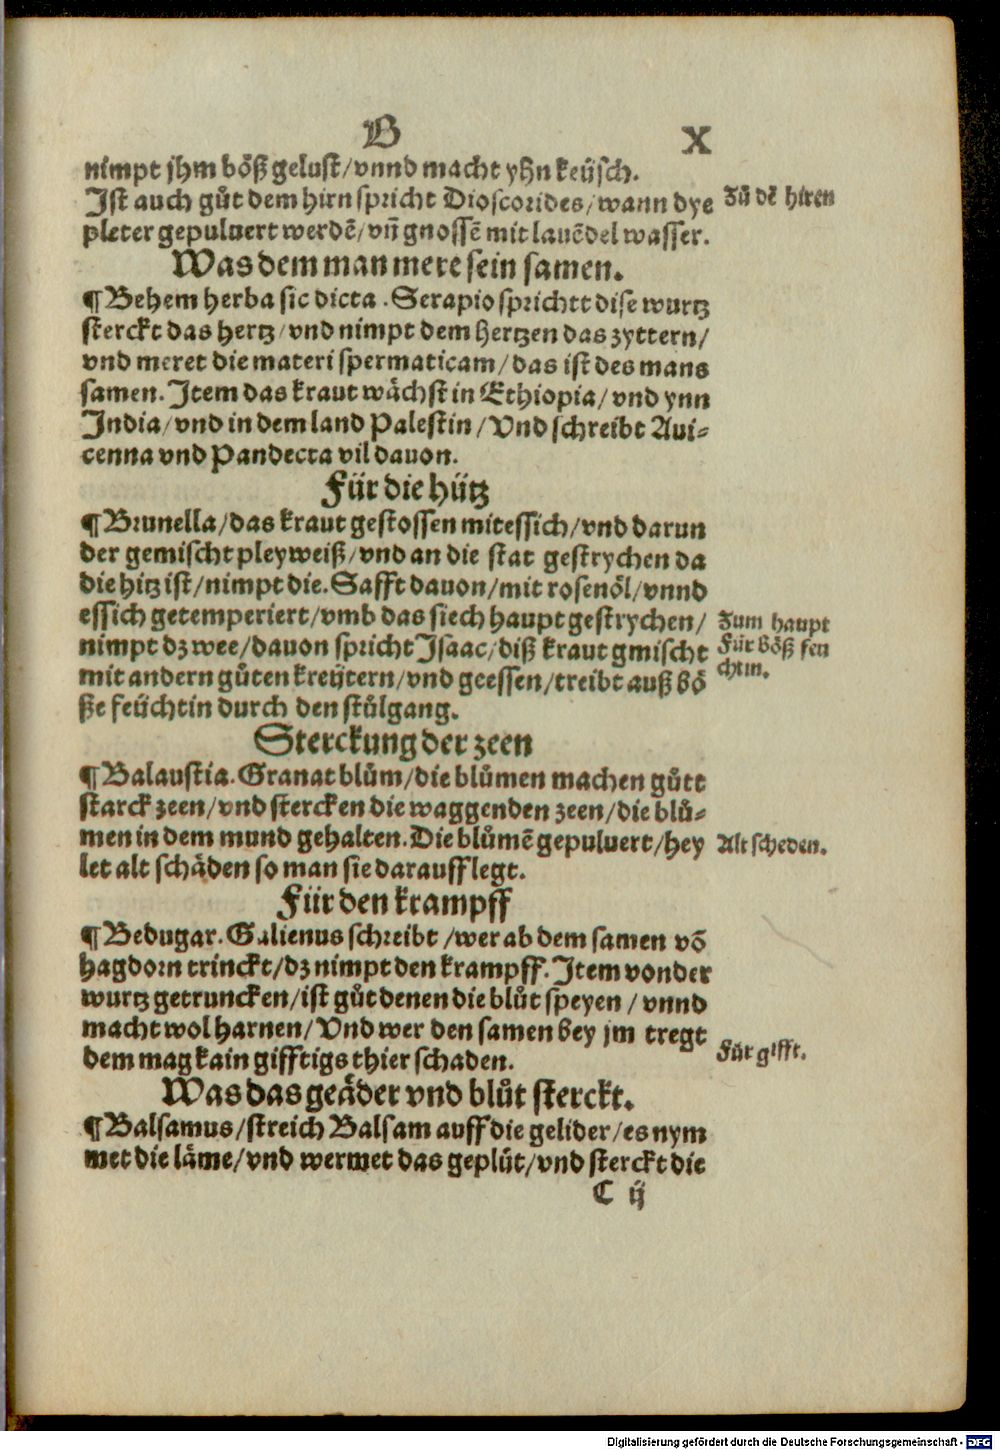 B
X
nimpt jhm böß gelust/vnnd macht yhn keüsch.
Jst auch gůt dem hirn spricht Dioscorides/wann dye
Zů dē hiren
pleter gepuluert werdē/vñ gnossē mit lauēdel wasser.
Was dem man mere sein samen.
¶ Behem herba sic dicta. Serapio sprichtt dise wurtz
sterckt das hertz/vnd nimpt dem hertzen das zyttern/
vnd meret die materi spermaticam/das ist des mans
samen. Jtem das kraut wächst in Ethiopia/vnd ynn
Jndia/vnd in dem land Palestin/Vnd schreibt Aui-
cenna vnd Pandecta vil dauon.
Für die hütz
¶ Brunella/das kraut gestossen mit essich/vnd darun
der gemischt pleyweiß/vnd an die stat gestrychen da
die hitz ist/nimpt die. Safft dauon/mit rosenöl/vnnd
essich getemperiert/vmb das siech haupt gestrychen/
Zum haupt
nimpt dz wee/dauon spricht Jsaac/diß kraut gmischt
Für böß feu
mit andern gůten kreijtern/vnd geessen/treibt auß bö
chtin.
ße feüchtin durch den stůlgang.
Sterckung der zeen
¶ Balaustia. Granat blům/die blůmen machen gůtt
starck zeen/vnd stercken die waggenden zeen/die blů-
men in dem mund gehalten. Die blůmē gepuluert/hey
Alt scheden.
let alt schäden so man sie darauff legt.
Für den krampff
¶ Bedugar. Galienus schreibt/wer ab dem samen vō
hagdorn trinckt/dz nimpt den krampff. Jtem von der
wurtz getruncken/ist gůt denen die blůt speyen/vnnd
macht wol harnen/Vnd wer den samen bey jm tregt
Für gifft.
dem mag kain gifftigs thier schaden.
Was das geäder vnd blůt sterckt.
¶ Balsamus/streich Balsam auff die gelider/es nym
met die läme/vnd wermet das geplüt/vnd sterckt die
C ij
Digitalisierung gefördert durch die Deutsche Forschungsgemeinschaft - DFG